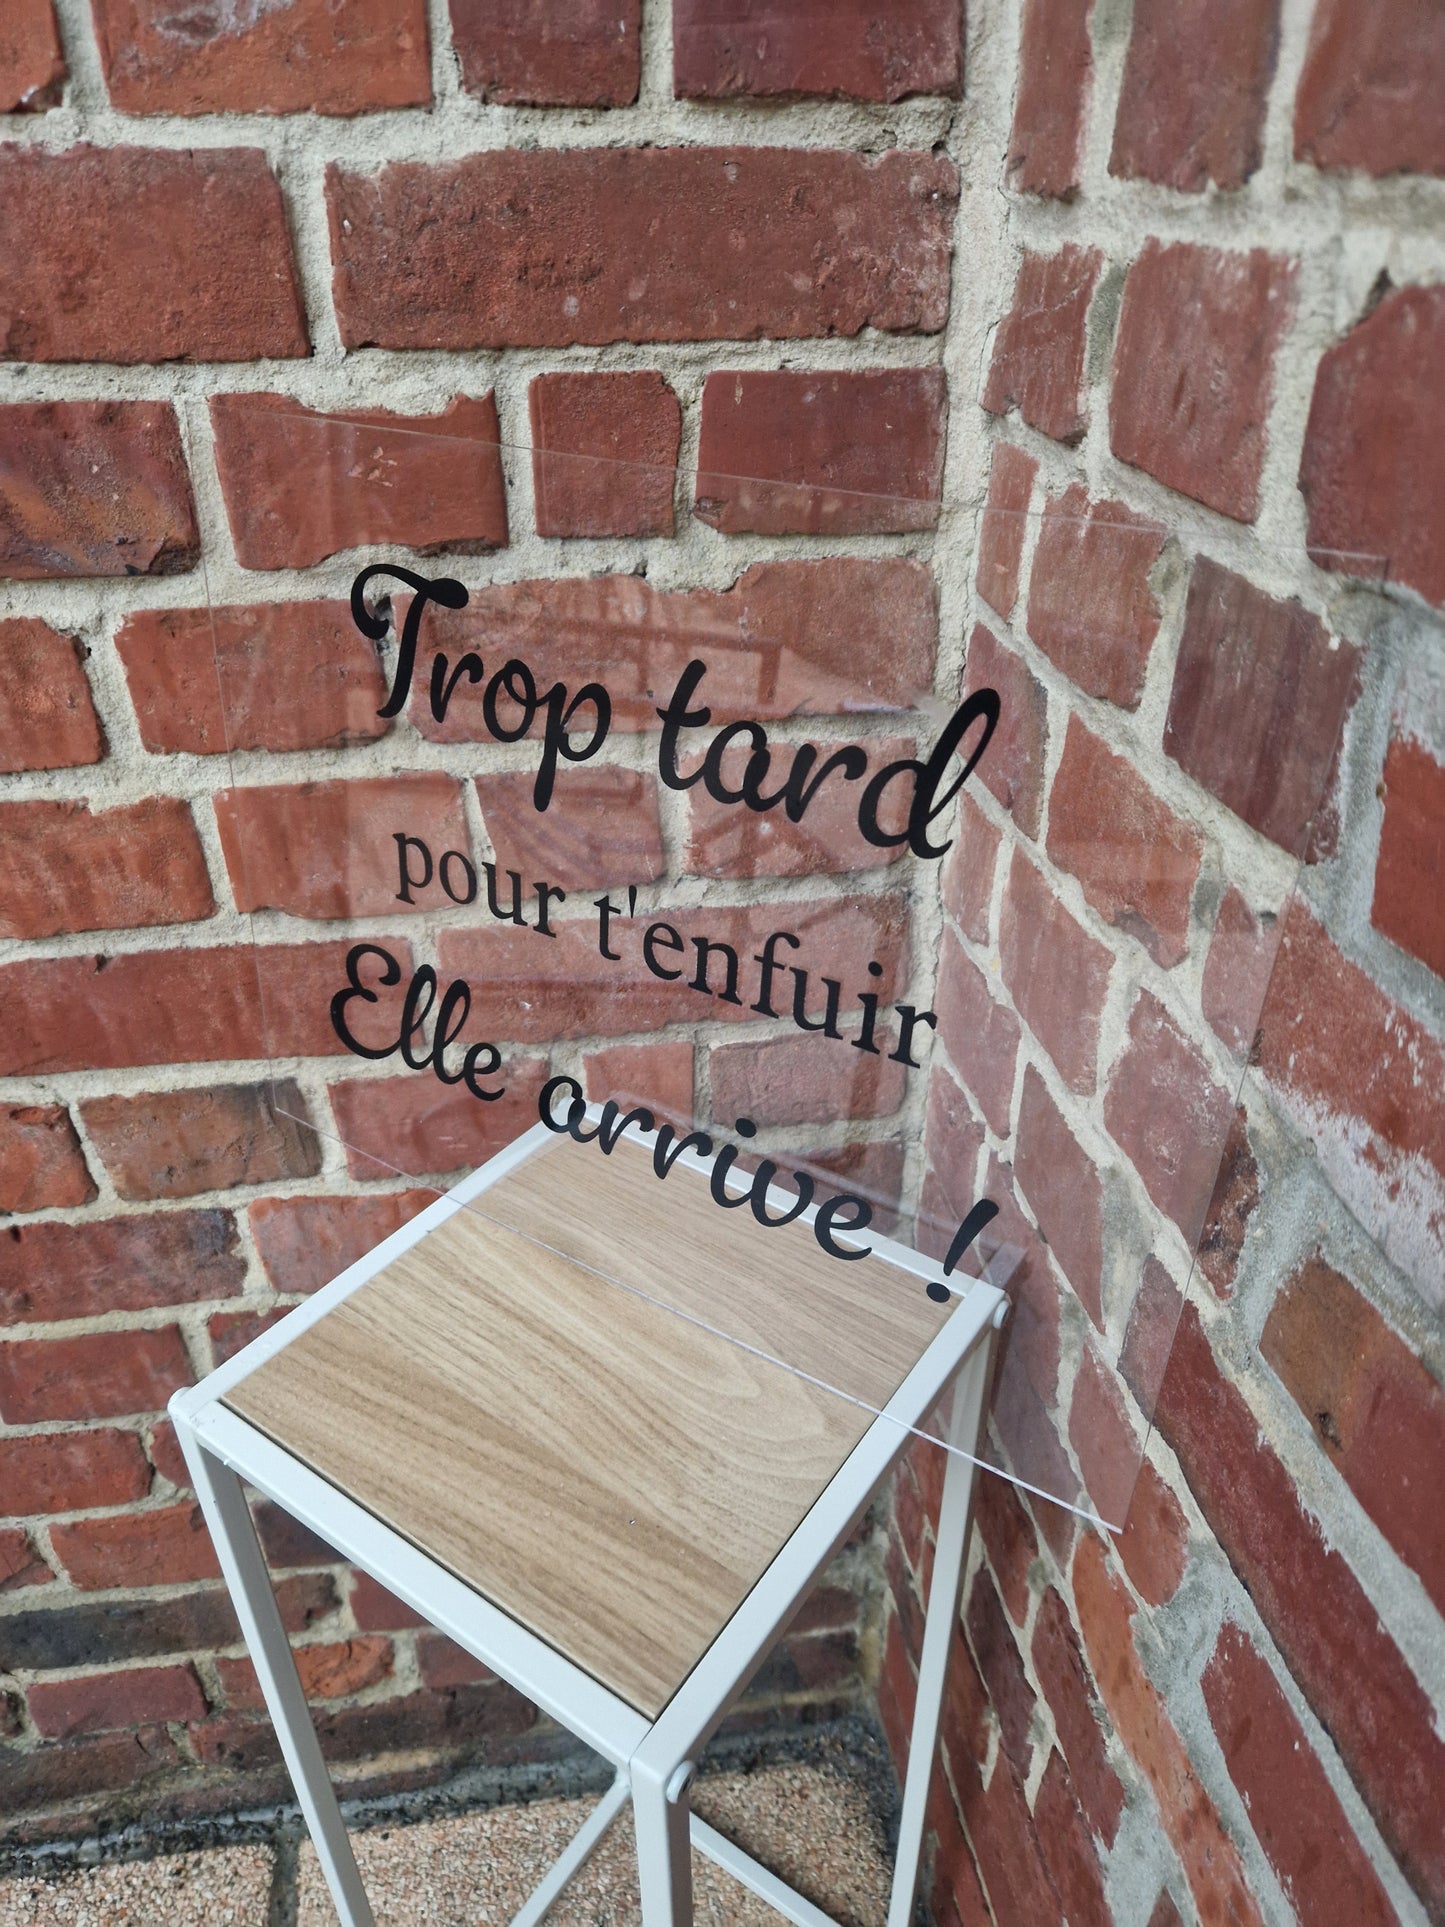 Trop tard
pour t'enfuir
Elle arrive !